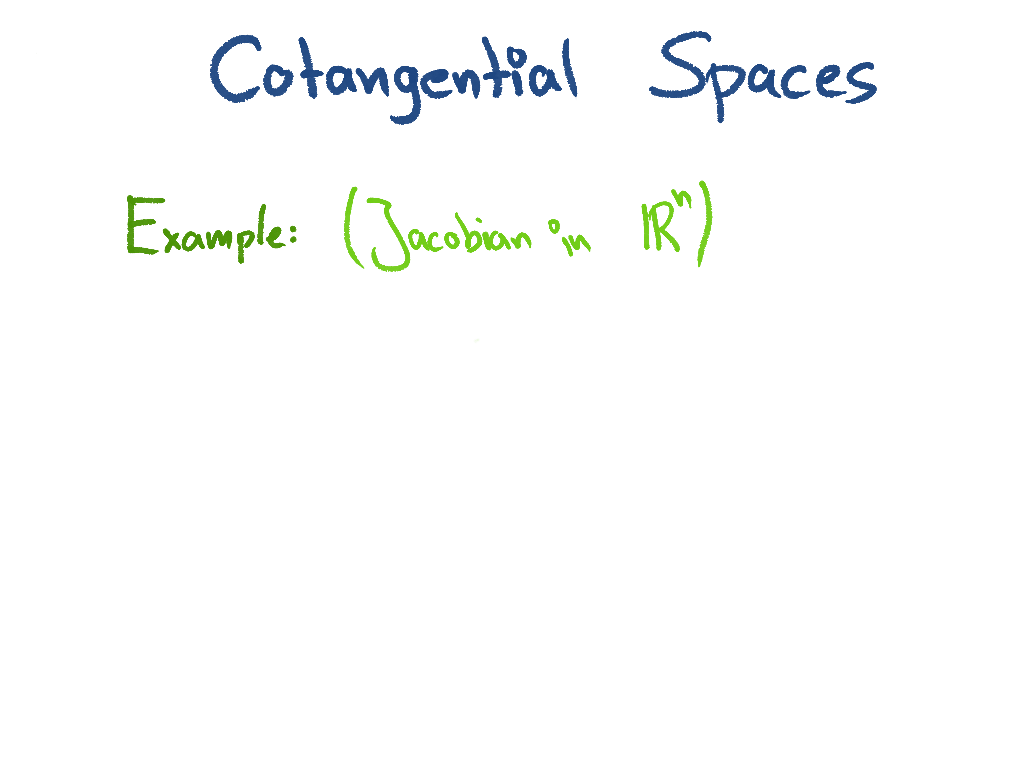 Cotangential Spaces
Example: (Jacobian in ℝⁿ)